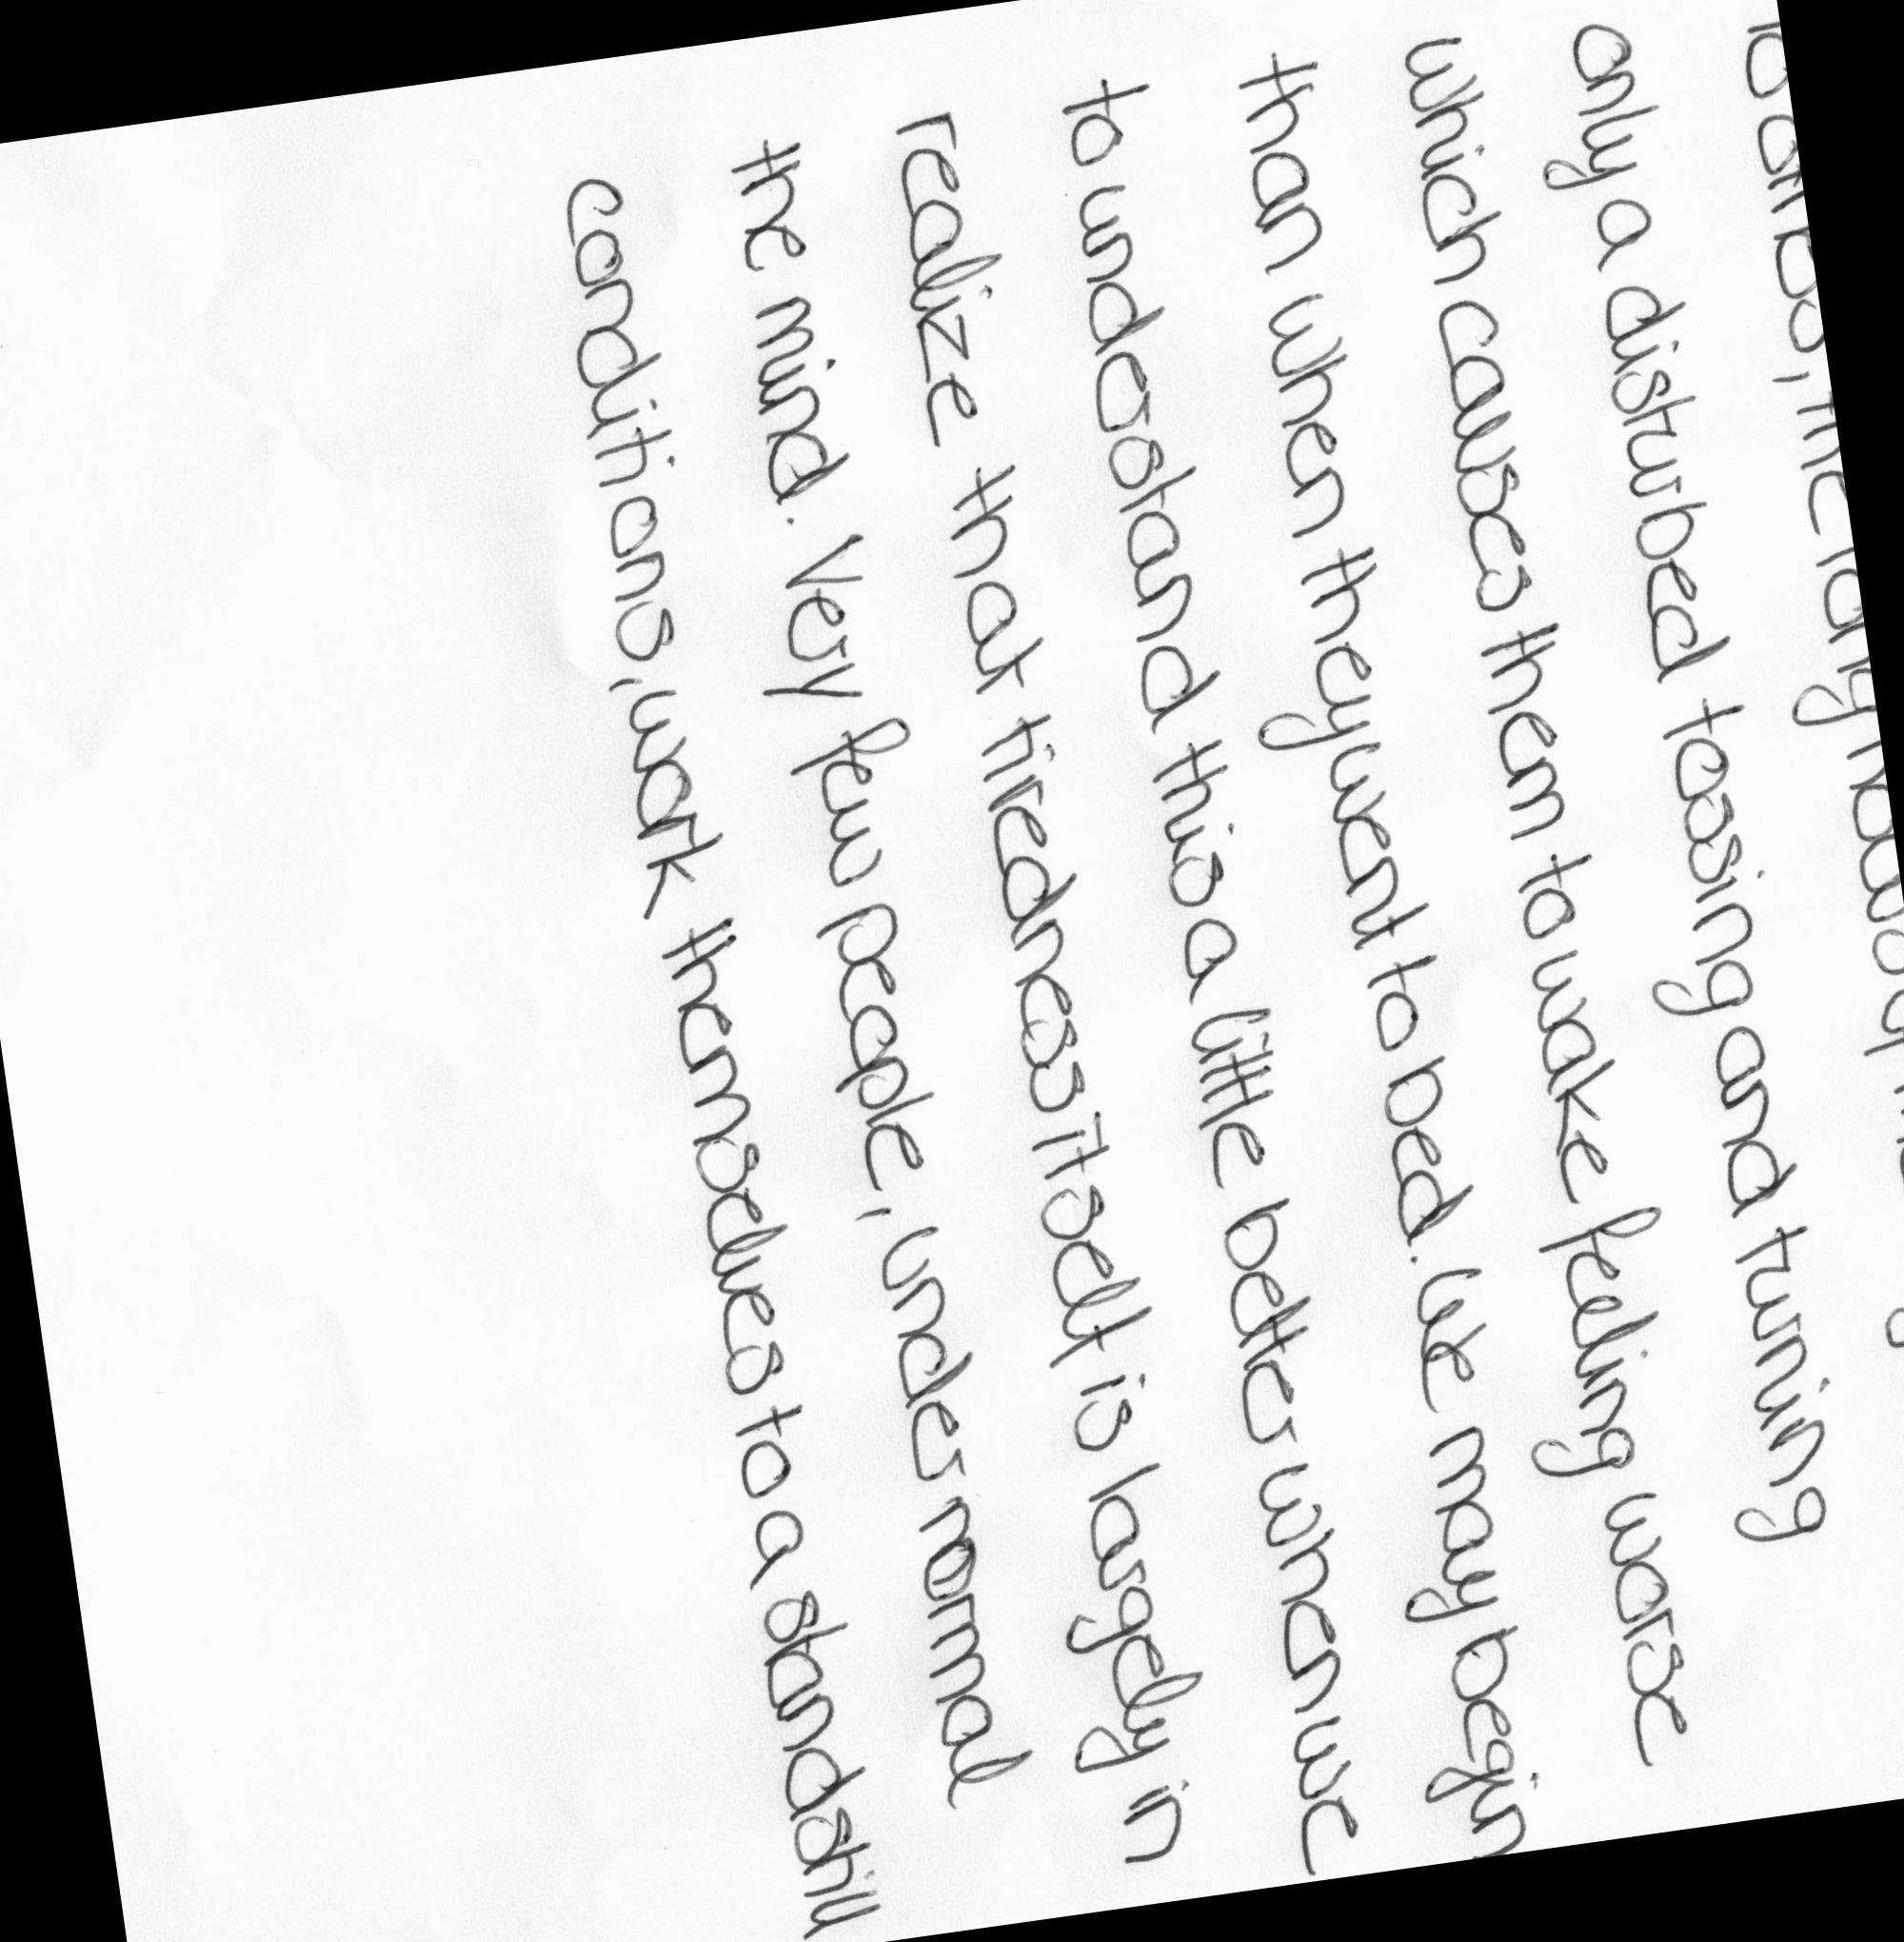 only a disturbed tossing and turning
which causes them to wake feeling worse
than when they went to bed. We may begin
to understand this a little better when we
realize that tiredness itself is largely in
the mind. Very few people, under normal
conditions, work themselves to a standstill